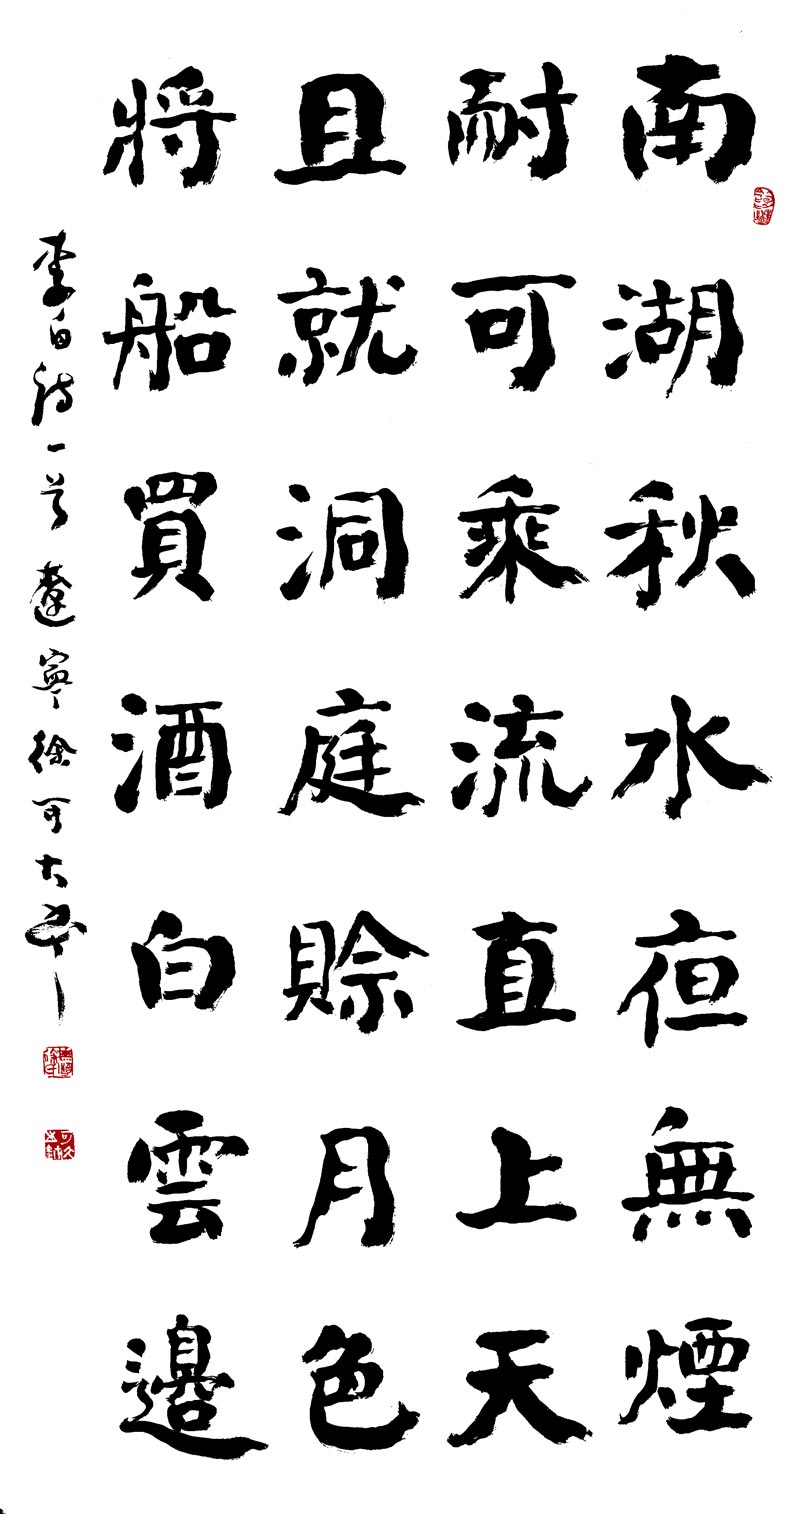 南湖秋水夜無煙
耐可乘流直上天
且就洞庭賒月色
將船買酒白雲邊
李白詩一首遼寧徐可大書